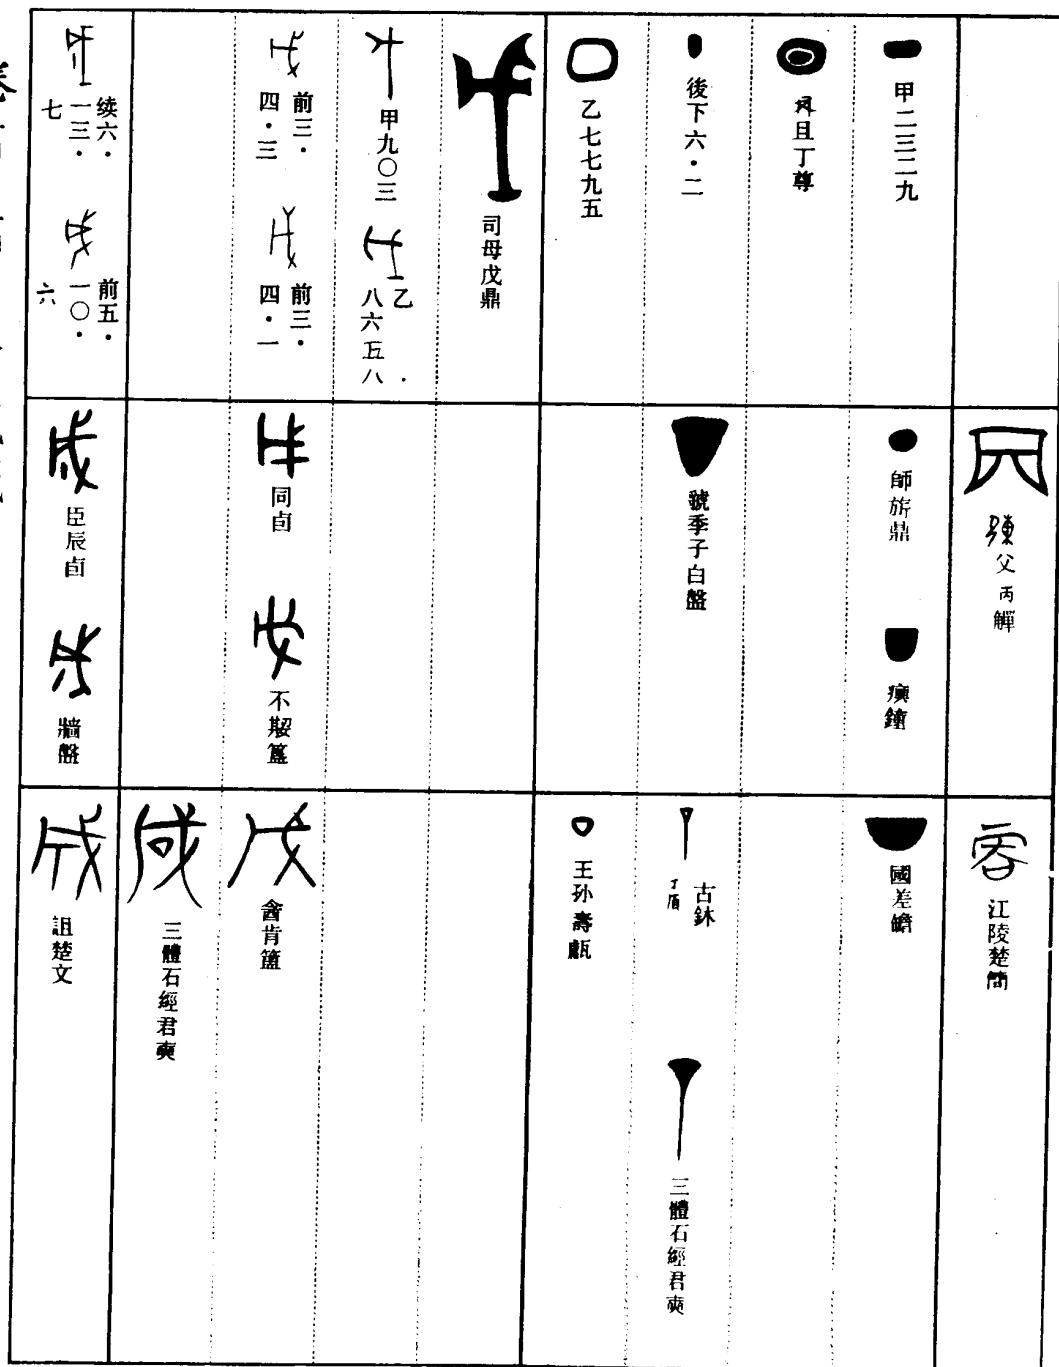 甲二三二九
且丁尊
後下六・二
乙七七九五
司母戊鼎
甲九〇三
乙八六五八
前三・四・三
前三・四・一
续六・一三・七
前五・一〇・六
父丙觶
師旂鼎
𤼈鐘
虢季子白盤
同卣
不𡢁簋
臣辰卣
牆盤
江陵楚簡
國差𦉜
古鉥
三體石經君奭
王孙壽甗
酓肯簠
三體石經君奭
詛楚文